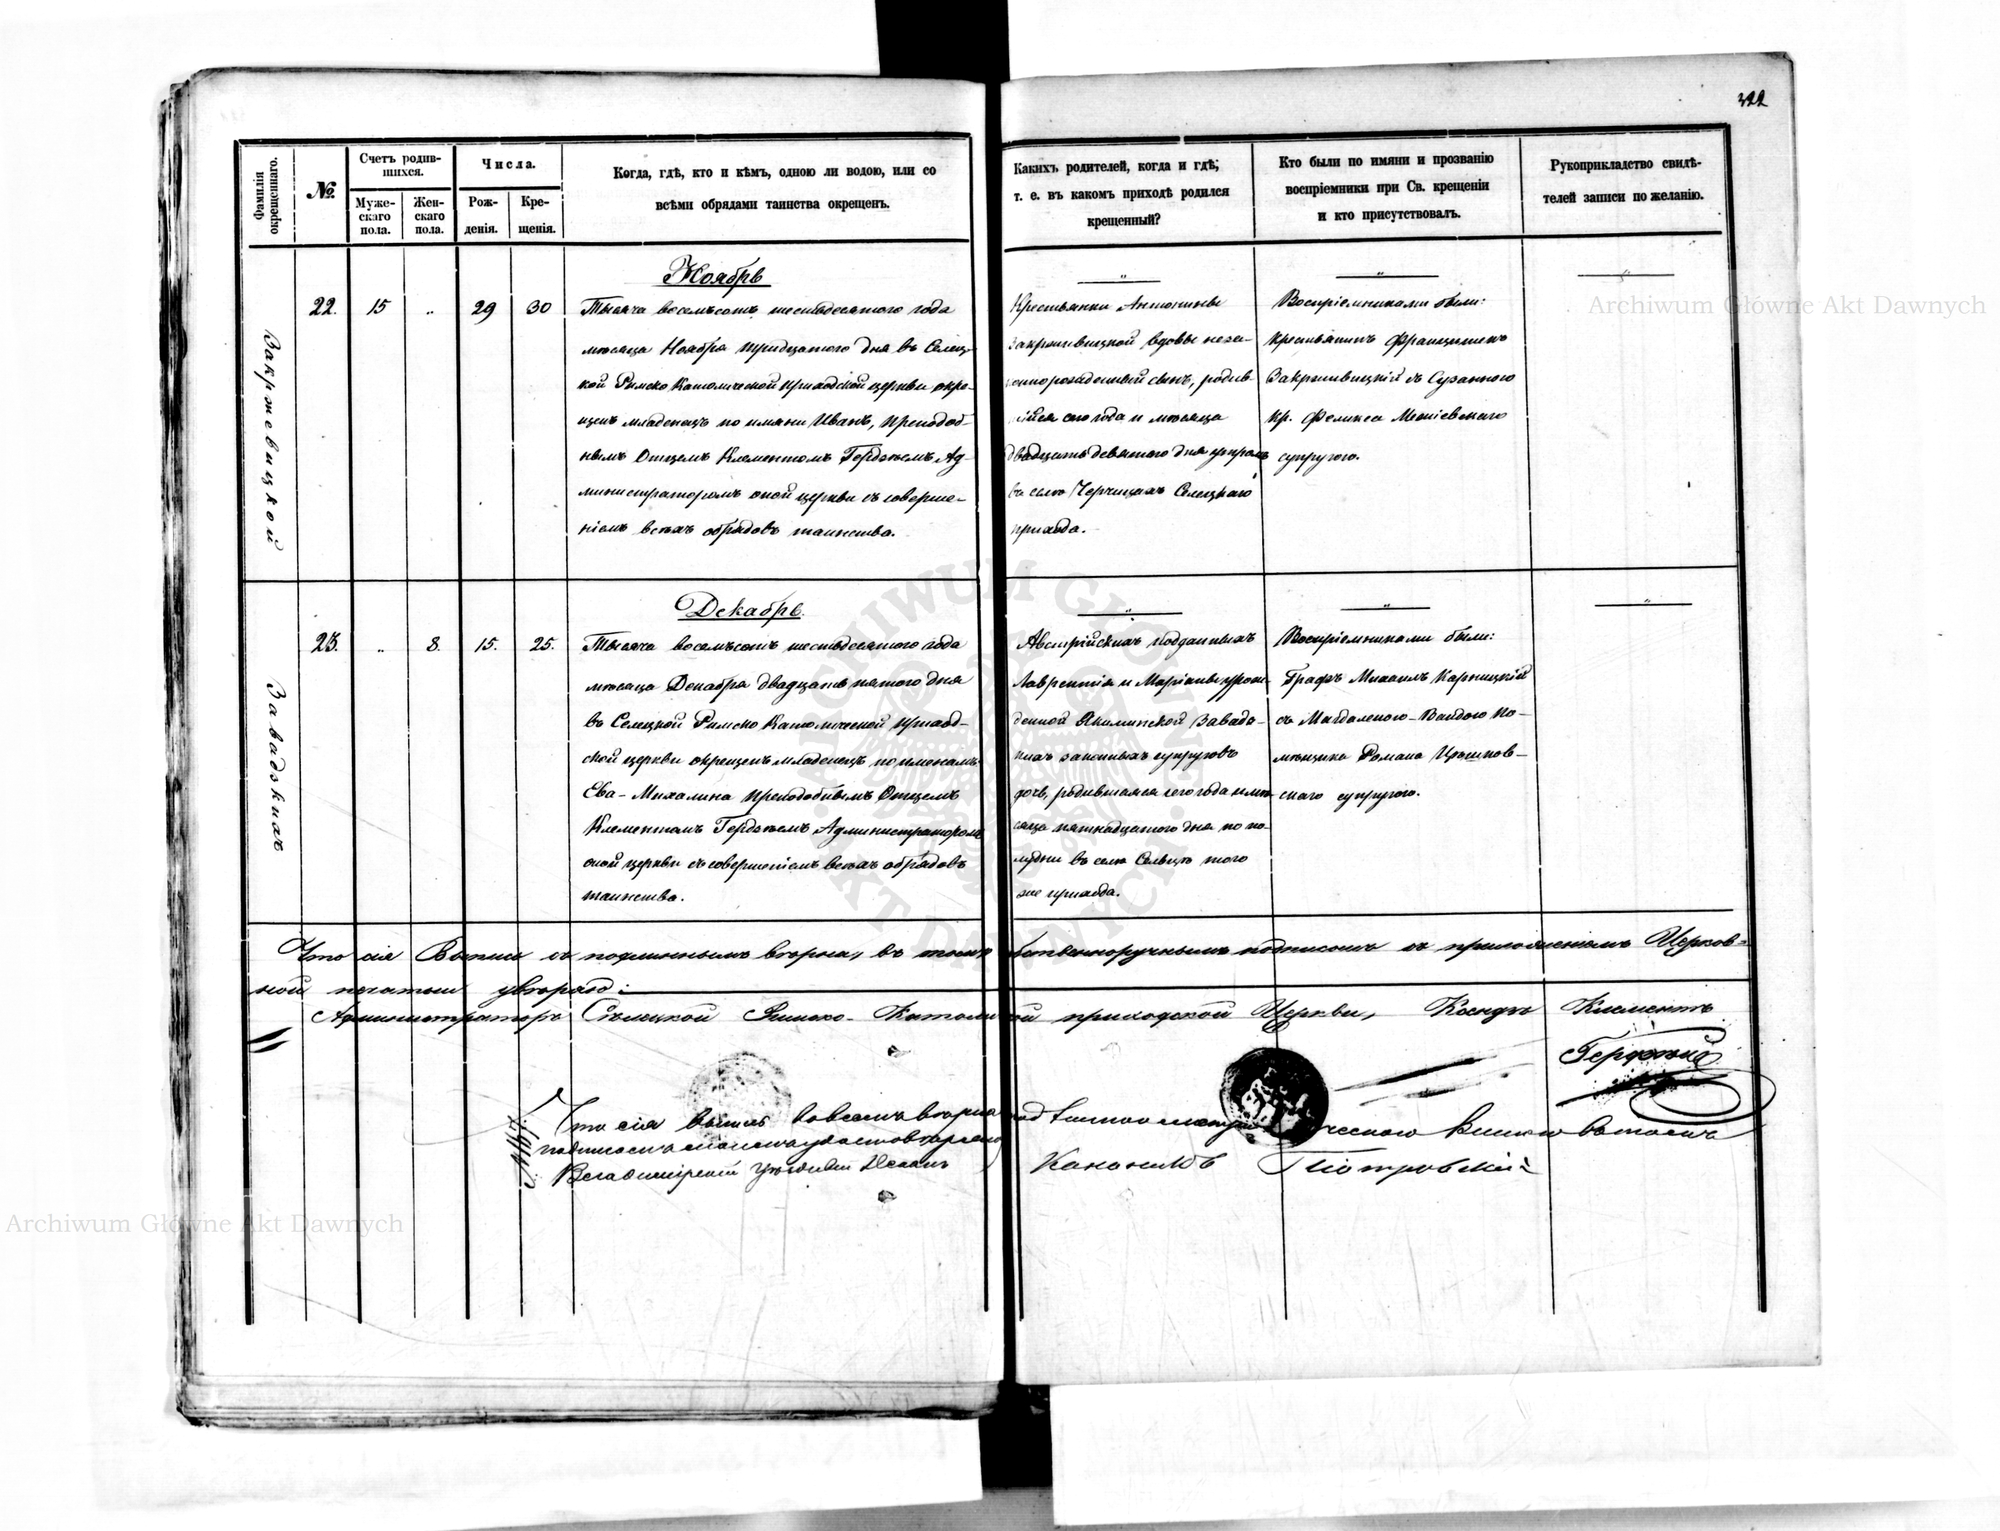 322
Фамилія окрещеннаго.
№.
Счетъ родив-
шихся.
Муже-
скаго
пола.
Жен-
скаго
пола.
Числа.
Рож-
денія.
Кре-
щенія.
Когда, гдѣ, кто и кѣмъ, одною ли водою, или со
всѣми обрядами таинства окрещенъ.
Какихъ родителей, когда и гдѣ,
т. е. въ какомъ приходѣ родился
крещенный?
Кто были по имяни и прозванію
воспріемники при Св. крещеніи
и кто присутствовалъ.
Рукоприкладство свидѣ-
телей записи по желанію.
Закржевицкой
22. 15 „ 29 30
Ноябрь
Тысяча восемьсотъ шестьдесятого года
мѣсяца Ноября тридцатого дня въ Селец-
кой Римско Католической приходской церкви окре-
щенъ младенецъ по имяни Иванъ, Преподоб-
нымъ Отцемъ Клементомъ Гердзѣемъ Ад-
министраторомъ оной церкви съ соверше-
ніемъ всѣхъ обрядовъ таинства.
„
Крестьянки Антонины
Закржевицкой вдовы неза-
коннорожденный сынъ, родив-
шійся сего года и мѣсяца
двадцать девятого дня утромъ
въ селѣ Черчицахъ Селецкаго
прихода.
„
Воспріемниками были:
Крестьянинъ Францишекъ
Закржевицкій съ Сузанною
Кр. Феликса
супругою.
„
Завадзкихъ
23. „ 8. 15. 25.
Декабрь.
Тысяча восемьсотъ шестьдесятого года
мѣсяца Декабря двадцать пятого дня
въ Селецкой Римско Католической приход-
ской церкви окрещенъ младенецъ по именамъ
Ева-Михалина Преподобнымъ Отцемъ
Клементомъ Гердзѣемъ Администраторомъ
оной церкви съ совершеніемъ всѣхъ обрядовъ
таинства.
„
Австрійскихъ подданныхъ
Лаврентія и Маріанны урож-
денной Якимпской Завадз-
кихъ законныхъ супруговъ
дочь, родившаяся сего года и мѣ-
сяца пятнадцатого дня по по-
лудни въ селѣ Сельцѣ того
же прихода.
„
Воспріемниками были:
Графъ Михаилъ Карницкій
съ Магдаленою-Вандою по-
мѣщика Романа
скаго супругою.
„
Что сія Выпись съ подлиннымъ вѣрна, въ томъ собственноручнымъ подписомъ съ приложеніемъ Церков-
ной печатью увѣряю:
Администраторъ Сѣлецкой Римско-Католической приходской Церкви, Ксендзъ Климентъ
Гердзѣй
№ 167.
Что сія выпись во всемъ вѣрна
подписомъ моимъ удостовѣряю
Владимірскій Уѣздный Деканъ
Каноникъ Піотровскій
Archiwum Główne Akt Dawnych
Archiwum Główne Akt Dawnych
ARCHIWUM GŁÓWNE AKT DAWNYCH